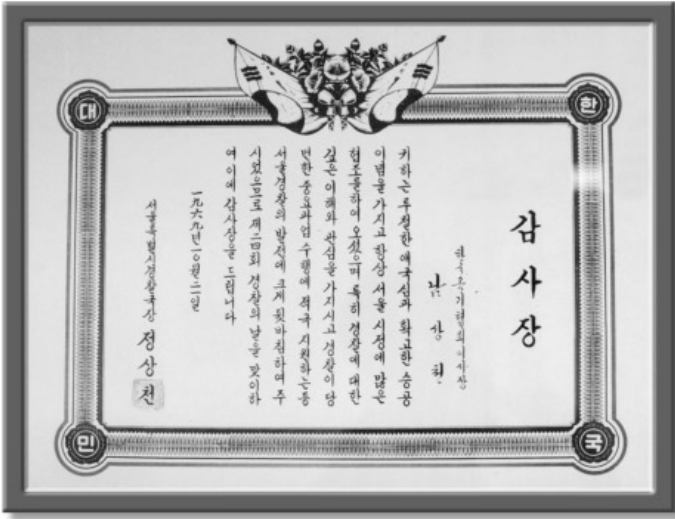 대 한
민 국
감사장
이사장
남 상
귀하는 투철한 애국심과 확고한 승공
이념을 가지고 항상 서울 시정에 많은
협조를하여 오셨으며 특히 경찰에 대한
깊은 이해와 관심을 가지시고 경찰이 당
면한 중요과업 수행에 적극 지원하는등
서울경찰의 발전에 크게 뒷바침하여 주
시었음으로 제二四회 경찰의 날을 맞이하
여 이에 감사장을 드립니다
一九六九년 一○월 二一일
서울특별시경찰국장 정상천